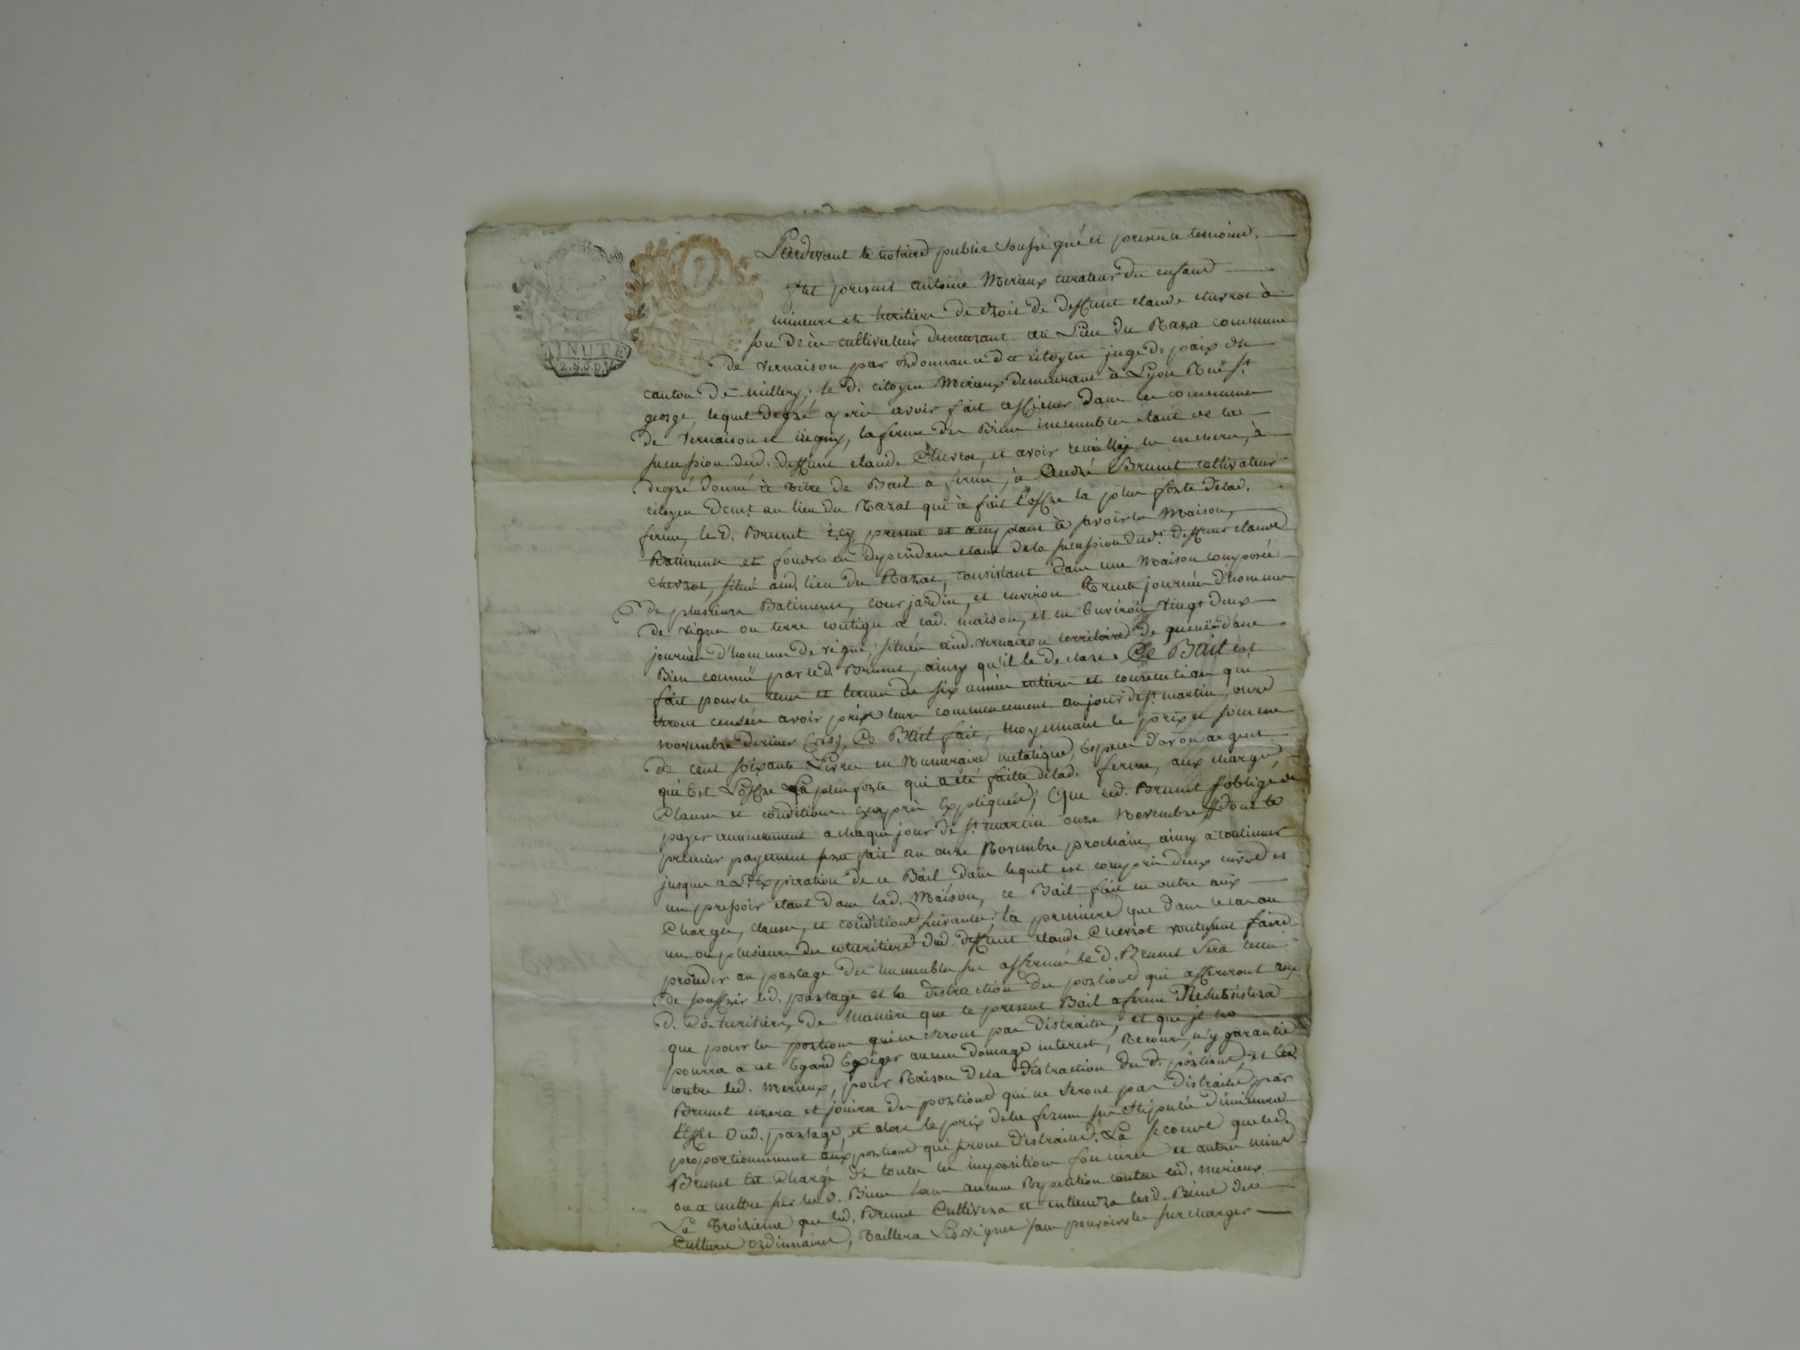 MINUTE
2. S. 6 D.
Pardevant le notaire public soussigné et present temoins.
fut present antoine Merieux curateur du enfant
mineurs et heritiers de droit de deffunt claude chervot à
son deces cultivateur demeurant au Lieu du Razat commune
de vernaison par ordonnance du citoyen juge de paix du
canton de millery; le d. citoyen Merieux demeurant à Lyon Rue St.
george, lequel degré apres avoir fait afficher dans les communes
de vernaison et irigny, la ferme des Biens immeubles etant de la
succession dud. deffunt claude Chervot, et avoir les encheres, à
degré donné à titre de Bail a ferme, à André Brunet cultivateur
citoyen demt. au lieu du Razat qui à fait l'offre la plus forte delad.
ferme, le d. Brunet icy present et acceptant à savoir la Maison,
Batiments et fonds en dependant etant dela succession dud. deffunt claude
chervot, situé aud. lieu du Razat, consistant dans une Maison composée
de plusieurs Batiments, cour jardin, et environ trente journées d'hommes
de vignes ou terre contigu a lad. maison, et en Environ vingt deux
journées d'hommes de vigne, situés aud. vernaison territoire de dans
Bien connu par led. Brunet, ainsy qu'il le declare. Ce Bail est
fait pour le tems et terme de six années entieres et consecutives qui
seront censées avoir pris leurs commencement au jour de St. martin onze
novembre dernier (vs), Ce Bail fait, moyennant le prix et somme
de cent soixante Livres en Numeraire metalique, Especes d'or ou argent
qui Est L'offre La plus forte qui a été faitte delad. ferme, aux charges,
Clauses et conditions cy apres Expliquées; Que led. Brunet s'oblige de
payer annuement a chaque jour de St. martin onze Novembre dont le
premier payement sera fait au onze Novembre prochain, ainsy a continuer
jusques a L'Expiration de ce Bail dans lequel est compris deux cuves et
un pressoir etant dans lad. Maison, ce Bail fait en outre aux
Charges, clauses, et conditions suivantes: la premiere que dans le cas ou
un ou plusieurs des coheritiers dud. deffunt claude Chervot voulussent faire
proceder au partage des immeubles sus affermés le d. Brunet sera tenu
de souffrir led. partage et la distraction des portions qui affereront aux
d. Coheritiers, de Maniere que le present Bail a ferme Ne subsistera
que pour les portions qui ne seront pas distraites, et que il ne
pourra a cet Egard Exiger aucun domage interets, Recours, n'y garantie
contre led. Merieux, pour Raison dela distraction des d. portions, et led.
Brunet usera et jouira des portions qui ne seront pas distraites par
L'effet dud. partage, et alors le prix dela ferme sus stipulée diminuera
proportionnement aux portions qui seront distraites. La seconde que led.
Brunet Est Chargé de toutes les impositions foncieres et autres mises
ou a mettre sur les d. Biens sans aucune Repetition contre led. merieux
La Troizieme que led. Brunet Cultivera et entiendra lesd. Biens de
Culture ordinnaires, Taillera Les vignes sans pouvoir les surcharger